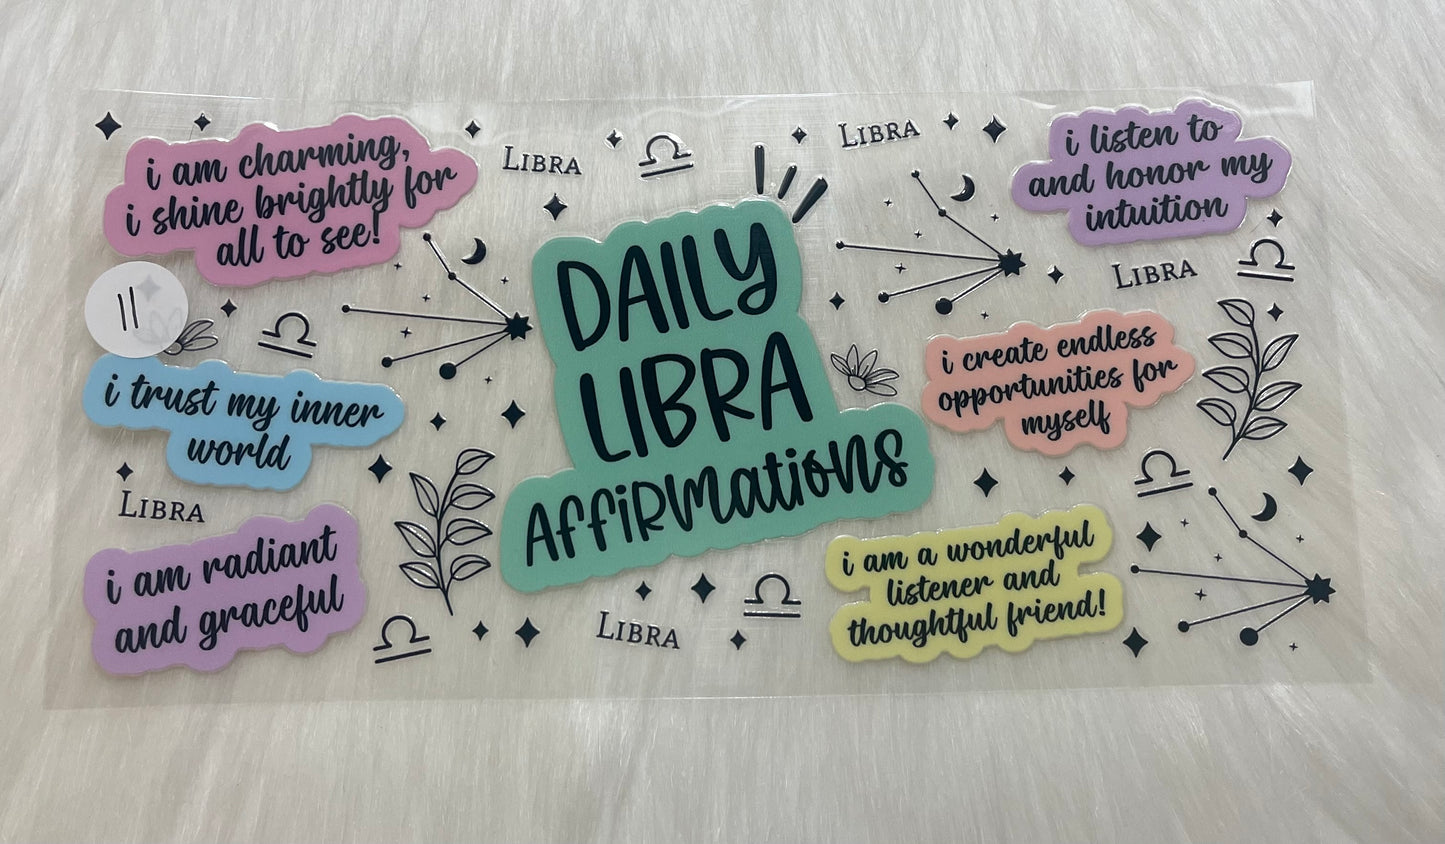 i am charming,
i shine brightly for
all to see!
LIBRA
LIBRA
i listen to
and honor my
intuition
11
DAILY
LIBRA
AFFIRMATIONS
LIBRA
i trust my inner
world
i create endless
opportunities for
myself
LIBRA
i am radiant
and graceful
i am a wonderful
listener and
thoughtful friend!
LIBRA